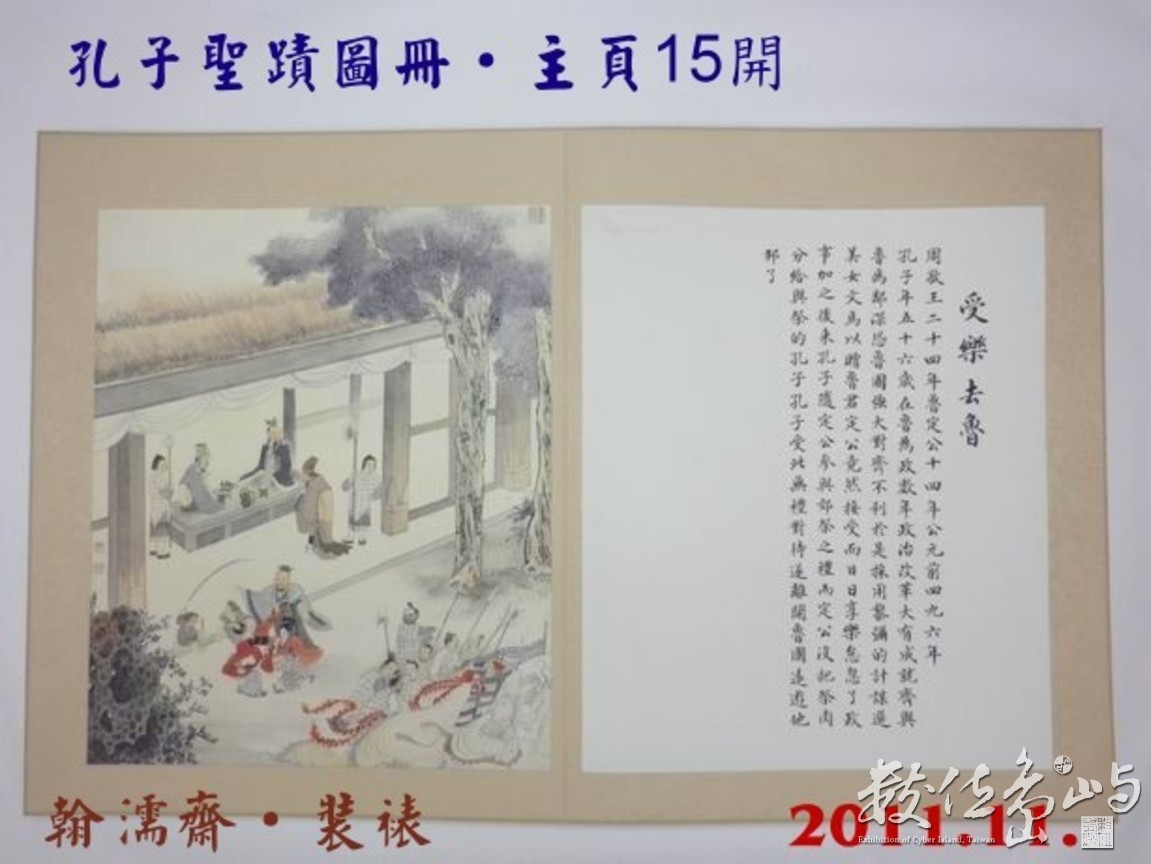 孔子聖蹟圖冊・主頁15開
受樂去魯
周敬王二十四年魯定公十四年公元前四九六年
孔子年五十六歲在魯為政數年政治改革大有成就齊與
魯為鄰深恐魯國強大對齊不利於是採用黎彌的計謀選
美女文馬以贈魯君定公竟然接受而日日享樂怠忽了政
事加之後來孔子隨定公參與郊祭之禮而定公沒把祭肉
分給與祭的孔子孔子受此無禮對待遂離開魯國遠遊他
邦了
翰濡齋・裝裱
2011.11.
數位島嶼
Exhibition of Cyber Island, Taiwan